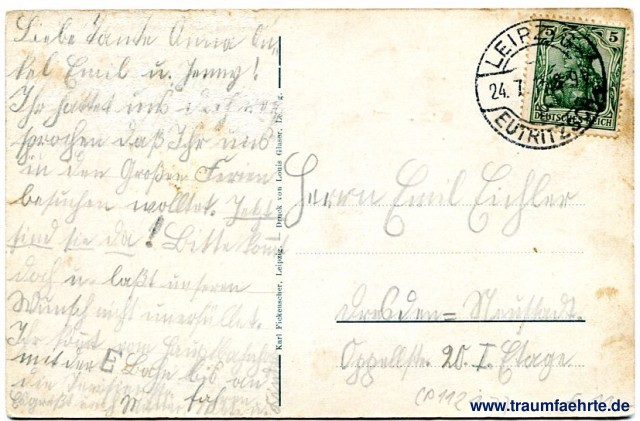 Liebe Tante Anna On-
kel Emil u. Jenny!
Ihr hattet uns doch ver-
sprochen daß Ihr uns
in den Großen Ferien
besuchen wolltet. Jetzt
sind sie da! Bitte kommt
doch u. laßt unseren
Wunsch nicht unerfüllet.
Ihr könnt vom Hauptbahnhof
mit der E Bahn bis an
die
fahren.
Karl Fickenscher, Leipzig. Druck von Louis Glaser, Leipzig.
LEIPZIG
24.7.
EUTRITZSCH
5
DEUTSCHES REICH
Herrn Emil Eichler
Dresden=Neustadt.
Oppellstr. 20. I. Etage
www.traumfaehrte.de